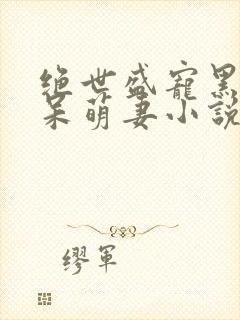 绝世盛宠黑
呆萌妻小説
缪军